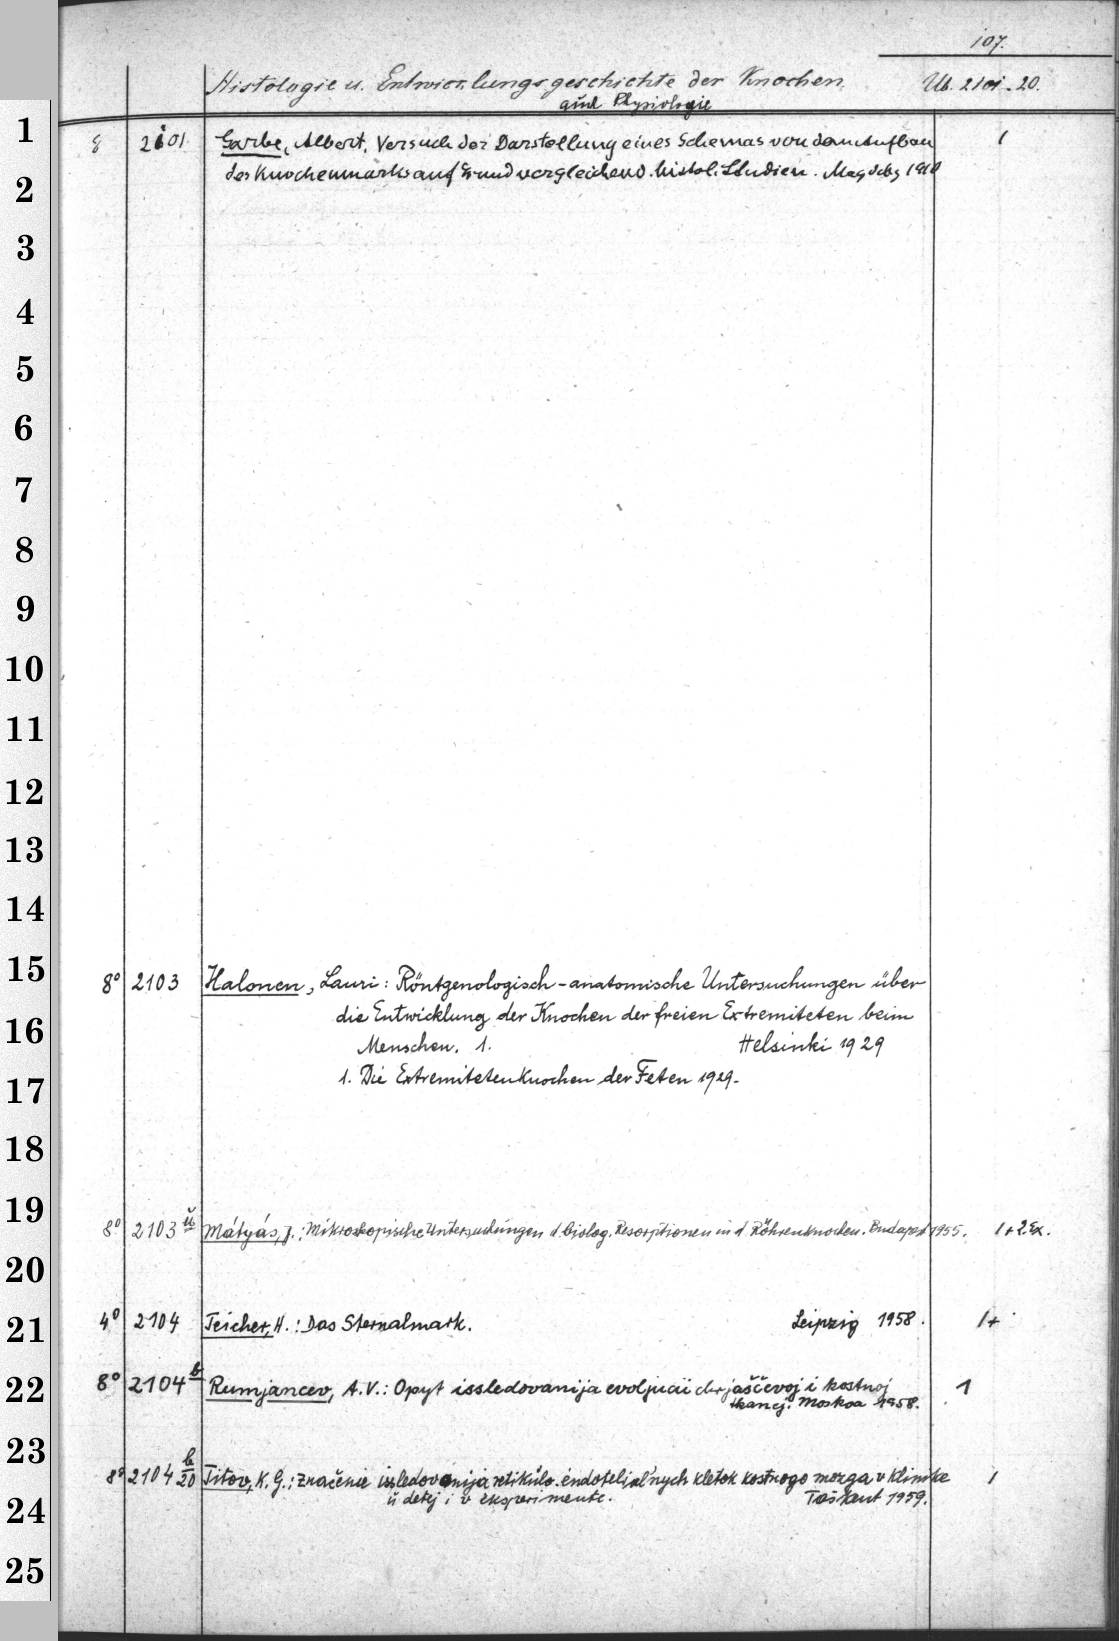 107.
Histologie u. Entwicklungsgeschichte der Knochen. Ub. 2101-20.
und Physiologie
1 8 2101 Garbe, Albert. Versuch der Darstellung eines Schemas von dem Aufbau 1
2 des Knochenmarks auf Grund vergleichend. histol. Studien. Magdebg 1910
3
4
5
6
7
8
9
10
11
12
13
14
15 8° 2103 Halonen, Lauri: Röntgenologisch-anatomische Untersuchungen über
die Entwicklung der Knochen der freien Extremiteten beim
16 Menschen. 1. Helsinki 1929
17 1. Die Extremitetenknochen der Feten 1929.
18
19 8° 2103 ü Mátyás, J.: Mikroskopische Untersuchungen d. biolog. Resorptionen in d. Röhrenknochen. Budapest 1955. 1+2Ex.
20
21 4° 2104 Teicher, H.: Das Sternalmark. Leipzig 1958. 1+
22 8° 2104 b Rumjancev, A.V.: Opyt issledovanija evoljucii chrjaščevoj i kostnoj 1
tkanej. Moskva 1958.
23 8° 2104 b/20 Titov, K.G.: Značenie issledovanija retikulo-endotelial'nych kletok kostnogo mozga v klinike 1
24 u detej i v eksperimente. Taškent 1959.
25